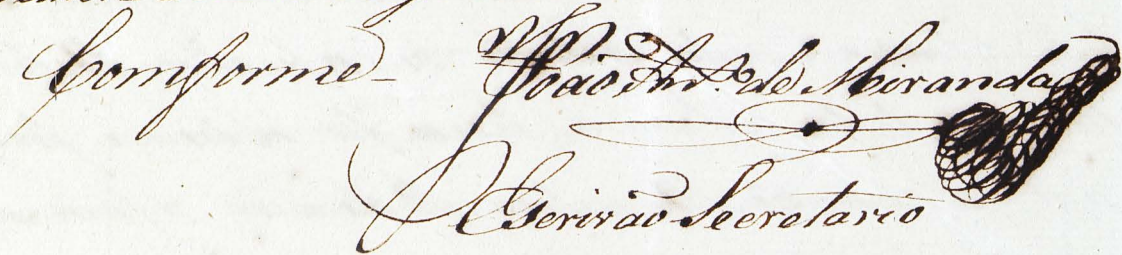 Comforme João Ant.º de Miranda
Escrivão Secretario